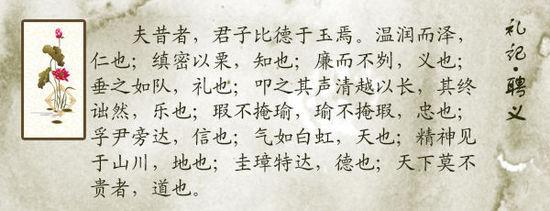 夫昔者，君子比德于玉焉。温润而泽，
仁也；缜密以栗，知也；廉而不刿，义也；
垂之如队，礼也；叩之其声清越以长，其终
诎然，乐也；瑕不掩瑜，瑜不掩瑕，忠也；
孚尹旁达，信也；气如白虹，天也；精神见
于山川，地也；圭璋特达，德也；天下莫不
贵者，道也。
礼记·聘义